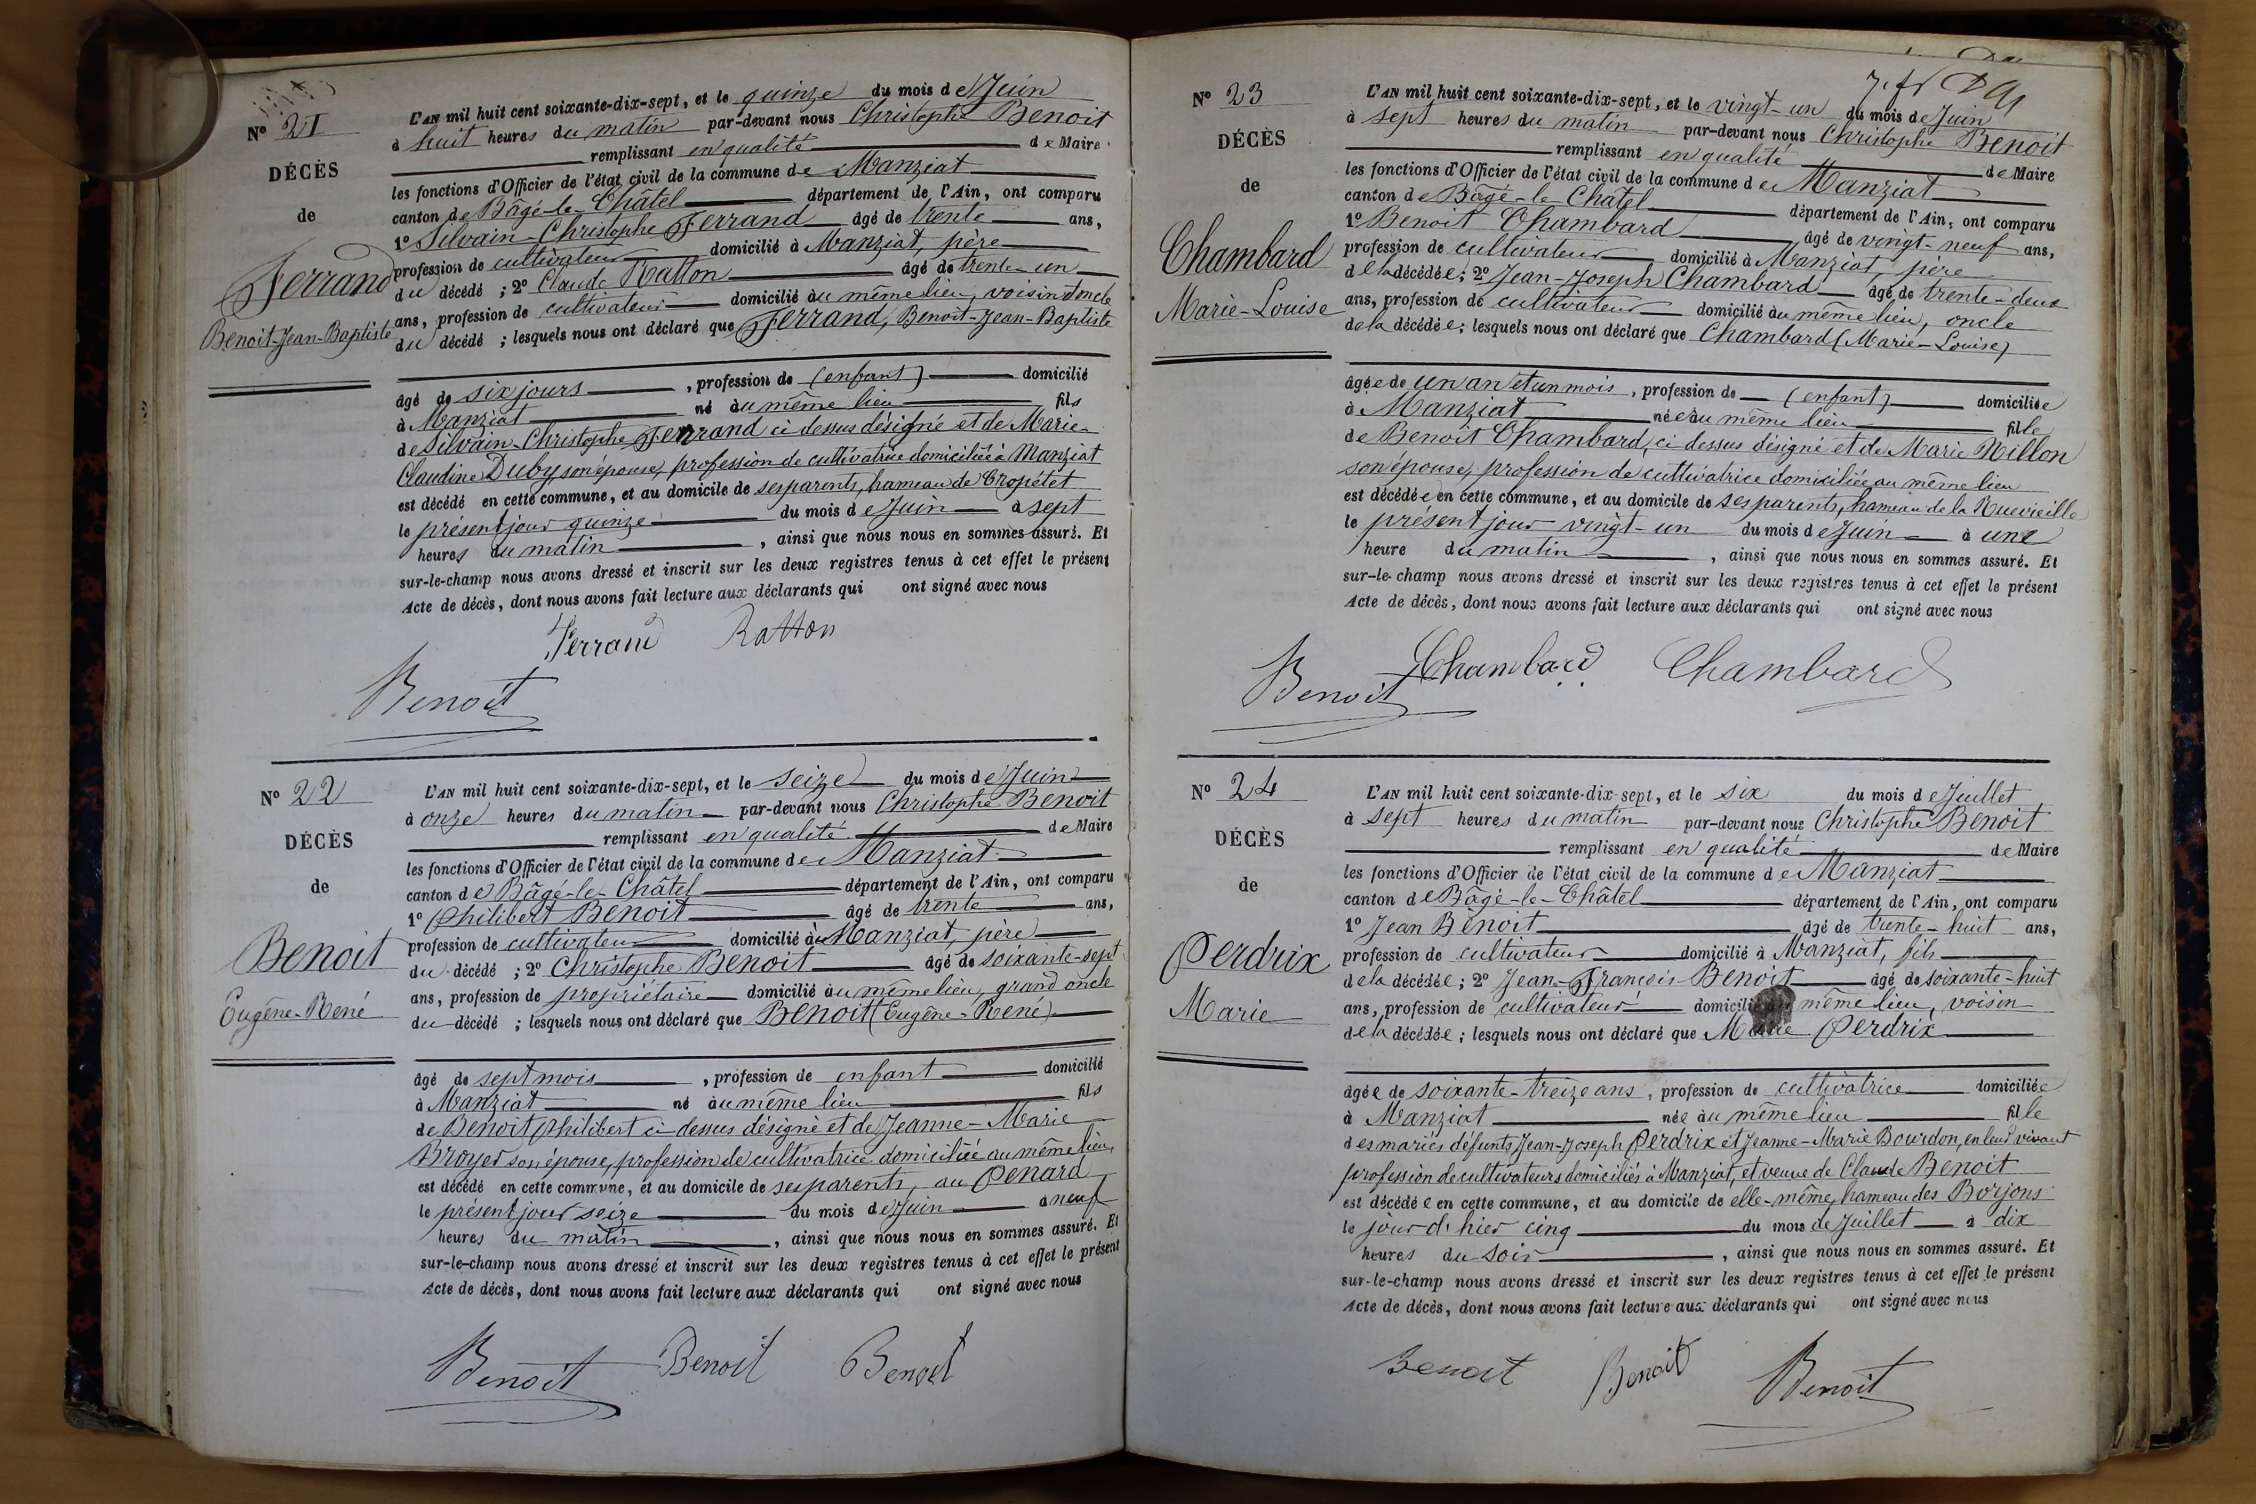 N° 21
DÉCÈS
de
Ferrand
Benoit-Jean-Baptiste
L'AN mil huit cent soixante-dix-sept, et le quinze du mois de Juin
à huit heures du matin par-devant nous Christophe Benoit
remplissant en qualité de Maire
les fonctions d'Officier de l'état civil de la commune de Manziat
canton de Bâgé-le-Châtel département de l'Ain, ont comparu
1° Silvain-Christophe Ferrand âgé de trente ans,
profession de cultivateur domicilié à Manziat, père
du décédé ; 2° Claude Ratton âgé de trente-un
ans, profession de cultivateur domicilié au même lieu, voisin d'oncle
du décédé ; lesquels nous ont déclaré que Ferrand, Benoit-Jean-Baptiste
âgé de six jours , profession de (enfant) domicilié
à Manziat né au même lieu fils
de Silvain-Christophe Ferrand ci dessus désigné et de Marie-
Claudine Duby son épouse, profession de cultivatrice domiciliée à Manziat
est décédé en cette commune, et au domicile de ses parents, hameau de Cropétet
le présent jour quinze du mois de Juin à sept
heures du matin , ainsi que nous nous en sommes assuré. Et
sur-le-champ nous avons dressé et inscrit sur les deux registres tenus à cet effet le présent
Acte de décès, dont nous avons fait lecture aux déclarants qui ont signé avec nous
Ferrand Ratton
Benoit
N° 22
DÉCÈS
de
Benoit
Eugêne-René
L'AN mil huit cent soixante-dix-sept, et le seize du mois de Juin
à onze heures du matin par-devant nous Christophe Benoit
remplissant en qualité de Maire
les fonctions d'Officier de l'état civil de la commune de Manziat
canton de Bâgé-le-Châtel département de l'Ain, ont comparu
1° Philibert Benoit âgé de trente ans,
profession de cultivateur domicilié à Manziat, père
du décédé ; 2° Christophe Benoit âgé de soixante-sept
ans, profession de propriétaire domicilié au même lieu, grand oncle
du décédé ; lesquels nous ont déclaré que Benoit (Eugêne-René)
âgé de sept mois , profession de enfant domicilié
à Manziat né au même lieu fils
de Benoit Philibert ci-dessus désigné et de Jeanne-Marie
Broyer son épouse, profession de cultivatrice domiciliée au même lieu,
est décédé en cette commune, et au domicile de ses parents, au Penard
le présent jour seize du mois de Juin à neuf
heures du matin , ainsi que nous nous en sommes assuré. Et
sur-le-champ nous avons dressé et inscrit sur les deux registres tenus à cet effet le présent
Acte de décès, dont nous avons fait lecture aux déclarants qui ont signé avec nous
Benoit Benoit Benoit
N° 23
DÉCÈS
de
Chambard
Marie-Louise
L'AN mil huit cent soixante-dix-sept, et le vingt-un du mois de Juin
à sept heures du matin par-devant nous Christophe Benoit
remplissant en qualité de Maire
les fonctions d'Officier de l'état civil de la commune de Manziat
canton de Bâgé-le-Châtel département de l'Ain, ont comparu
1° Benoit Chambard âgé de vingt-neuf ans,
profession de cultivateur domicilié à Manziat, père
de la décédée ; 2° Jean-Joseph Chambard âgé de trente-deux
ans, profession de cultivateur domicilié au même lieu, oncle
de la décédée ; lesquels nous ont déclaré que Chambard (Marie-Louise)
âgée de un an et un mois , profession de (enfant) domiciliée
à Manziat née au même lieu fille
de Benoit Chambard, ci dessus désigné et de Marie Millon
son épouse, profession de cultivatrice domiciliée au même lieu
est décédée en cette commune, et au domicile de ses parents, hameau de la Ruevieille
le présent jour vingt-un du mois de Juin à une
heure du matin , ainsi que nous nous en sommes assuré. Et
sur-le-champ nous avons dressé et inscrit sur les deux registres tenus à cet effet le présent
Acte de décès, dont nous avons fait lecture aux déclarants qui ont signé avec nous
Benoit Chambard Chambard
N° 24
DÉCÈS
de
Perdrix
Marie
L'AN mil huit cent soixante-dix-sept, et le six du mois de Juillet
à sept heures du matin par-devant nous Christophe Benoit
remplissant en qualité de Maire
les fonctions d'Officier de l'état civil de la commune de Manziat
canton de Bâgé-le-Châtel département de l'Ain, ont comparu
1° Jean Benoit âgé de trente-huit ans,
profession de cultivateur domicilié à Manziat, fils
de la décédée ; 2° Jean-François Benoit âgé de soixante-huit
ans, profession de cultivateur domicilié au même lieu, voisin
de la décédée ; lesquels nous ont déclaré que Marie Perdrix
âgée de soixante-treize ans , profession de cultivatrice domiciliée
à Manziat née au même lieu fille
des mariés défunts Jean-Joseph Perdrix et Jeanne-Marie Bourdon, en leur vivant
profession de cultivateurs domiciliés à Manziat, et veuve de Claude Benoit
est décédée en cette commune, et au domicile de elle-même, hameau des Borjons
le jour d'hier cinq du mois de Juillet à dix
heures du soir , ainsi que nous nous en sommes assuré. Et
sur-le-champ nous avons dressé et inscrit sur les deux registres tenus à cet effet le présent
Acte de décès, dont nous avons fait lecture aux déclarants qui ont signé avec nous
Benoit Benoit Benoit